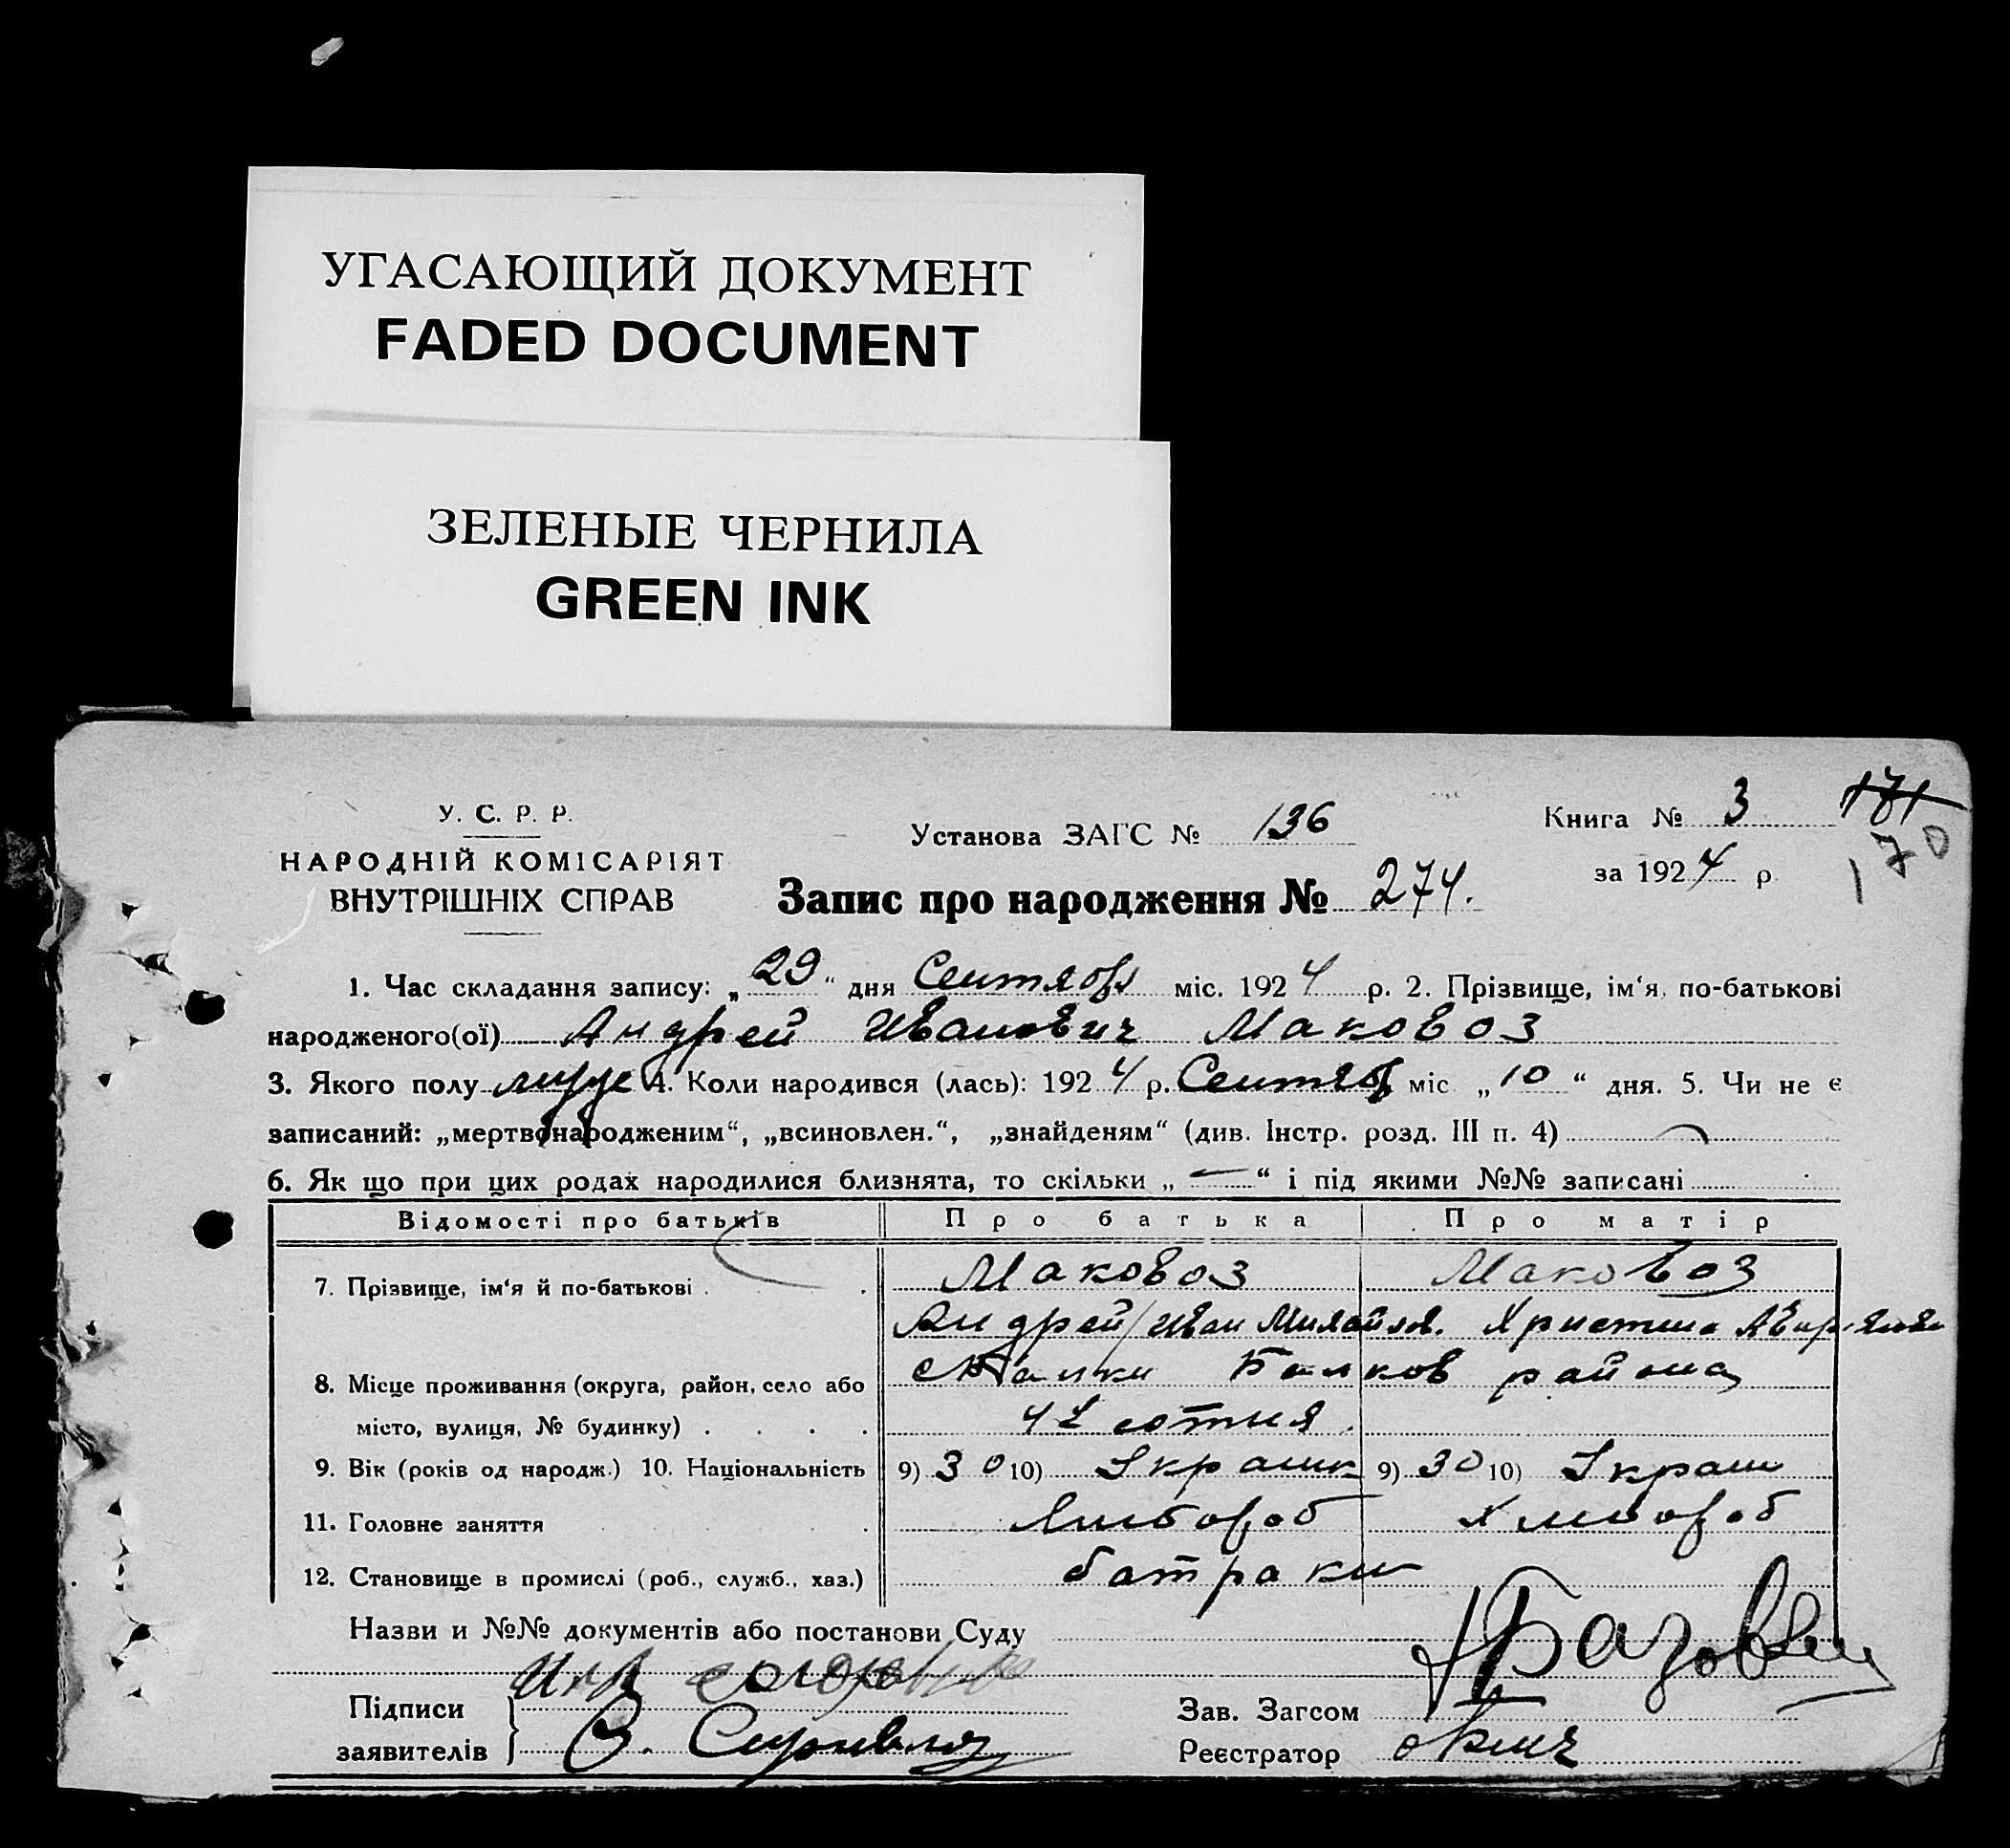 УГАСАЮЩИЙ ДОКУМЕНТ
FADED DOCUMENT
ЗЕЛЕНЫЕ ЧЕРНИЛА
GREEN INK
У. С. Р. Р.
НАРОДНІЙ КОМІСАРІЯТ
ВНУТРІШНІХ СПРАВ
Установа ЗАГС № 136
Книга № 3
171
170
за 1924 р.
Запис про народження № 274.
1. Час складання запису: „29“ дня Сентября міс. 1924 р. 2. Прізвище, ім‘я, по-батькові
народженого(ої) Андрей Иванович Маковоз
3. Якого полу муж 4. Коли народився (лась): 1924 р. Сентяб міс. „10“ дня. 5. Чи не є
записаний: „мертвонародженим“, „всиновлен.“, „знайденям“ (див. Інстр. розд. III п. 4)
6. Як що при цих родах народилися близнята, то скільки „—“ і під якими №№ записані
Відомості про батьків Про батька Про матір
7. Прізвище, ім‘я й по-батькові Маковоз Маковоз
Андрей/Иван Михайлов. Христина
8. Місце проживання (округа, район, село або район
місто, вулиця, № будинку) сотня
9. Вік (років од народж.) 10. Національність 9) 30 10) Украинк 9) 30 10) Украин
11. Головне заняття Хлибороб Хлибороб
12. Становище в промислі (роб., служб., хаз.) батраки
Назви и №№ документів або постанови Суду
Підписи
заявителів
Зав. Загсом
Реєстратор